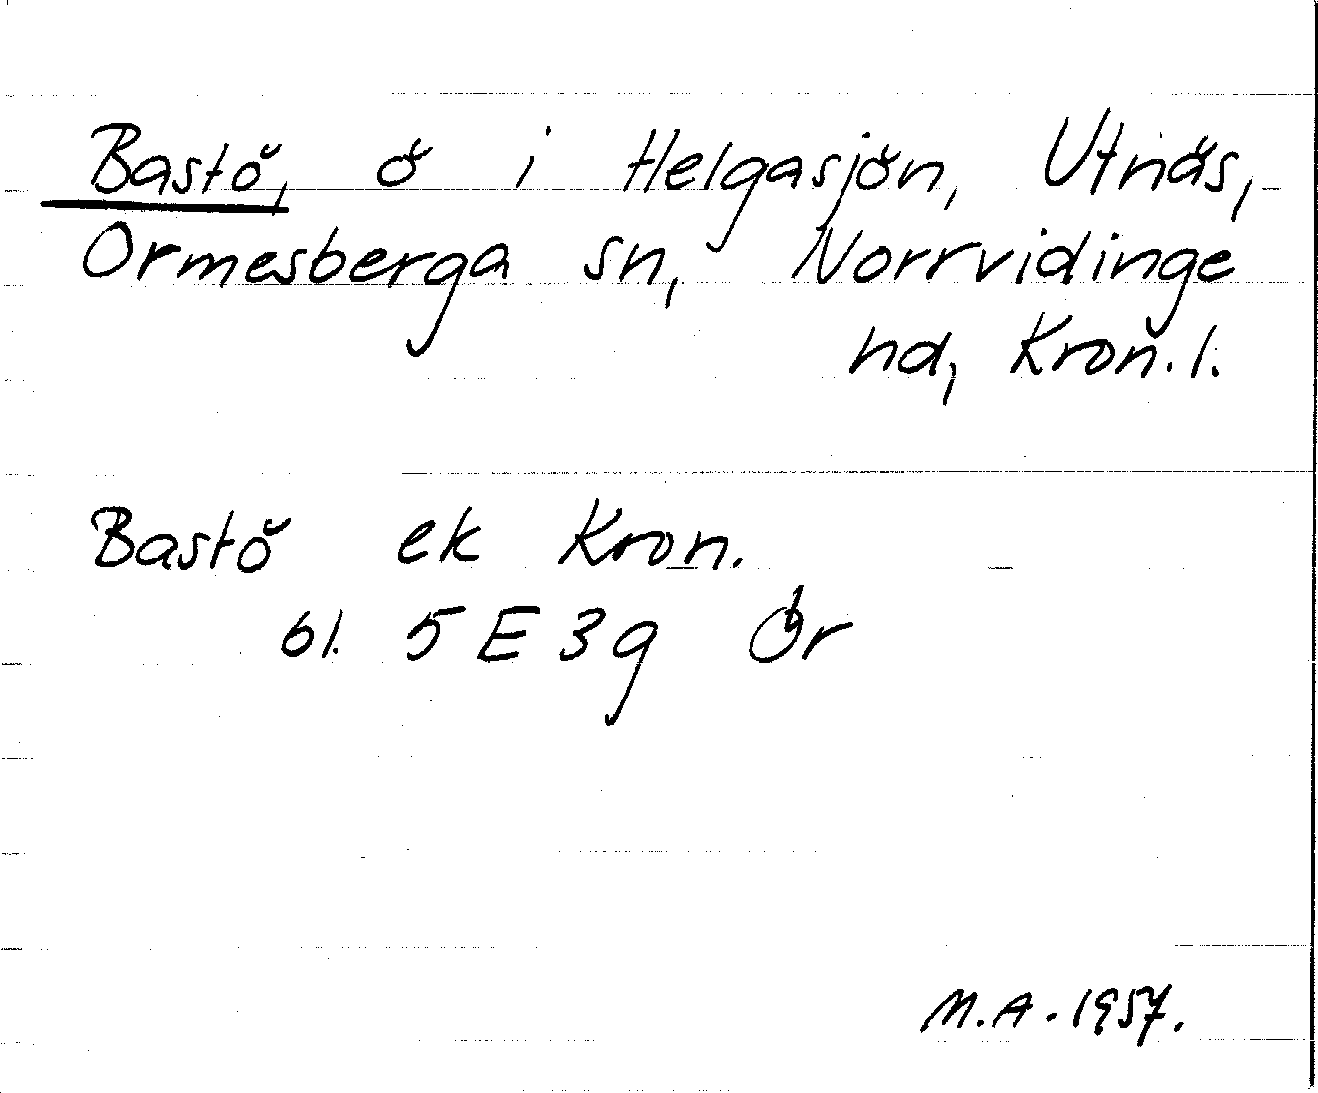 Bastö, ö i Helgasjön, Utnäs,
Ormesberga sn, Norrvidinge
hd, Kron. l.
Bastö ek Kron.
bl. 5 E 3 g Ör
M.A. 1957.